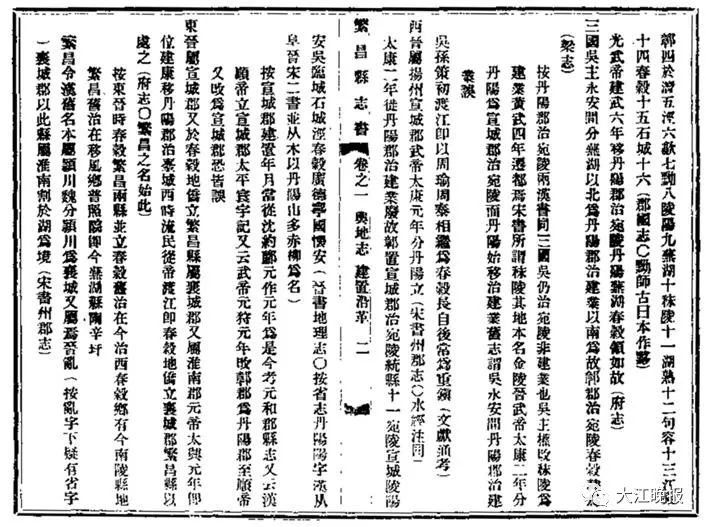 鄣四於潛五涇六歙七黝八陵陽九蕪湖十秣陵十一湖熟十二句容十三江
十四春穀十五石城十六（郡國志○黝師古曰本作黟）
光武帝建武六年移丹陽郡治宛陵丹陽蕪湖春穀領如故（府志）
三國吳主永安間分蕪湖以北爲丹陽郡治建業以南爲故鄣郡治宛陵春穀
（梁志）
按丹陽郡治宛陵兩漢書同三國吳仍治宛陵非建業也吳主權改秣陵爲
建業黃武四年遷都焉宋書所謂秣陵其地本名金陵晉武帝太康二年分
丹陽爲宣城郡治宛陵而丹陽始移治建業舊志謂吳永安間丹陽郡治建
業誤
吳孫策初渡江即以周瑜周泰相繼爲春穀長自後常爲重鎮（文獻通考）
西晉屬揚州宣城郡武帝太康元年分丹陽立（宋書州郡志○水經注同）
太康二年徙丹陽郡治建業廢故鄣置宣城郡治宛陵統縣十一宛陵宣城陵陽
繁昌縣志書 卷之一 輿地志 建置沿革 二
安吳臨城石城涇春穀廣德寧國懷安（晉書地理志○按省志丹陽陽字漢从
阜晉宋二書並从木以丹陽山多赤柳爲名）
按宣城郡建置年月當從沈約酈元作元年爲是今考元和郡縣志又云漢
順帝立宣城郡太平寰宇記又云武帝元狩元年改鄣郡爲丹陽郡至順帝
又改爲宣城郡恐皆誤
東晉屬宣城郡又於春穀地僑立繁昌縣屬襄城郡又屬淮南郡元帝太興元年即
位建康移丹陽郡治臺城西時流民從帝渡江即春穀地僑立襄城郡繁昌縣以
處之（府志○繁昌之名始此）
按東晉時春穀繁昌兩縣並立春穀舊治在今治西春穀鄉有今南陵縣地
繁昌舊治在移風鄉普照隂即今蕪湖縣南辛圩
繁昌令漢舊名本屬潁川魏分潁川爲襄城又屬焉晉亂（按亂字下疑有省字
）襄城郡以此縣屬淮南割於湖爲境（宋書州郡志）
大江晚报